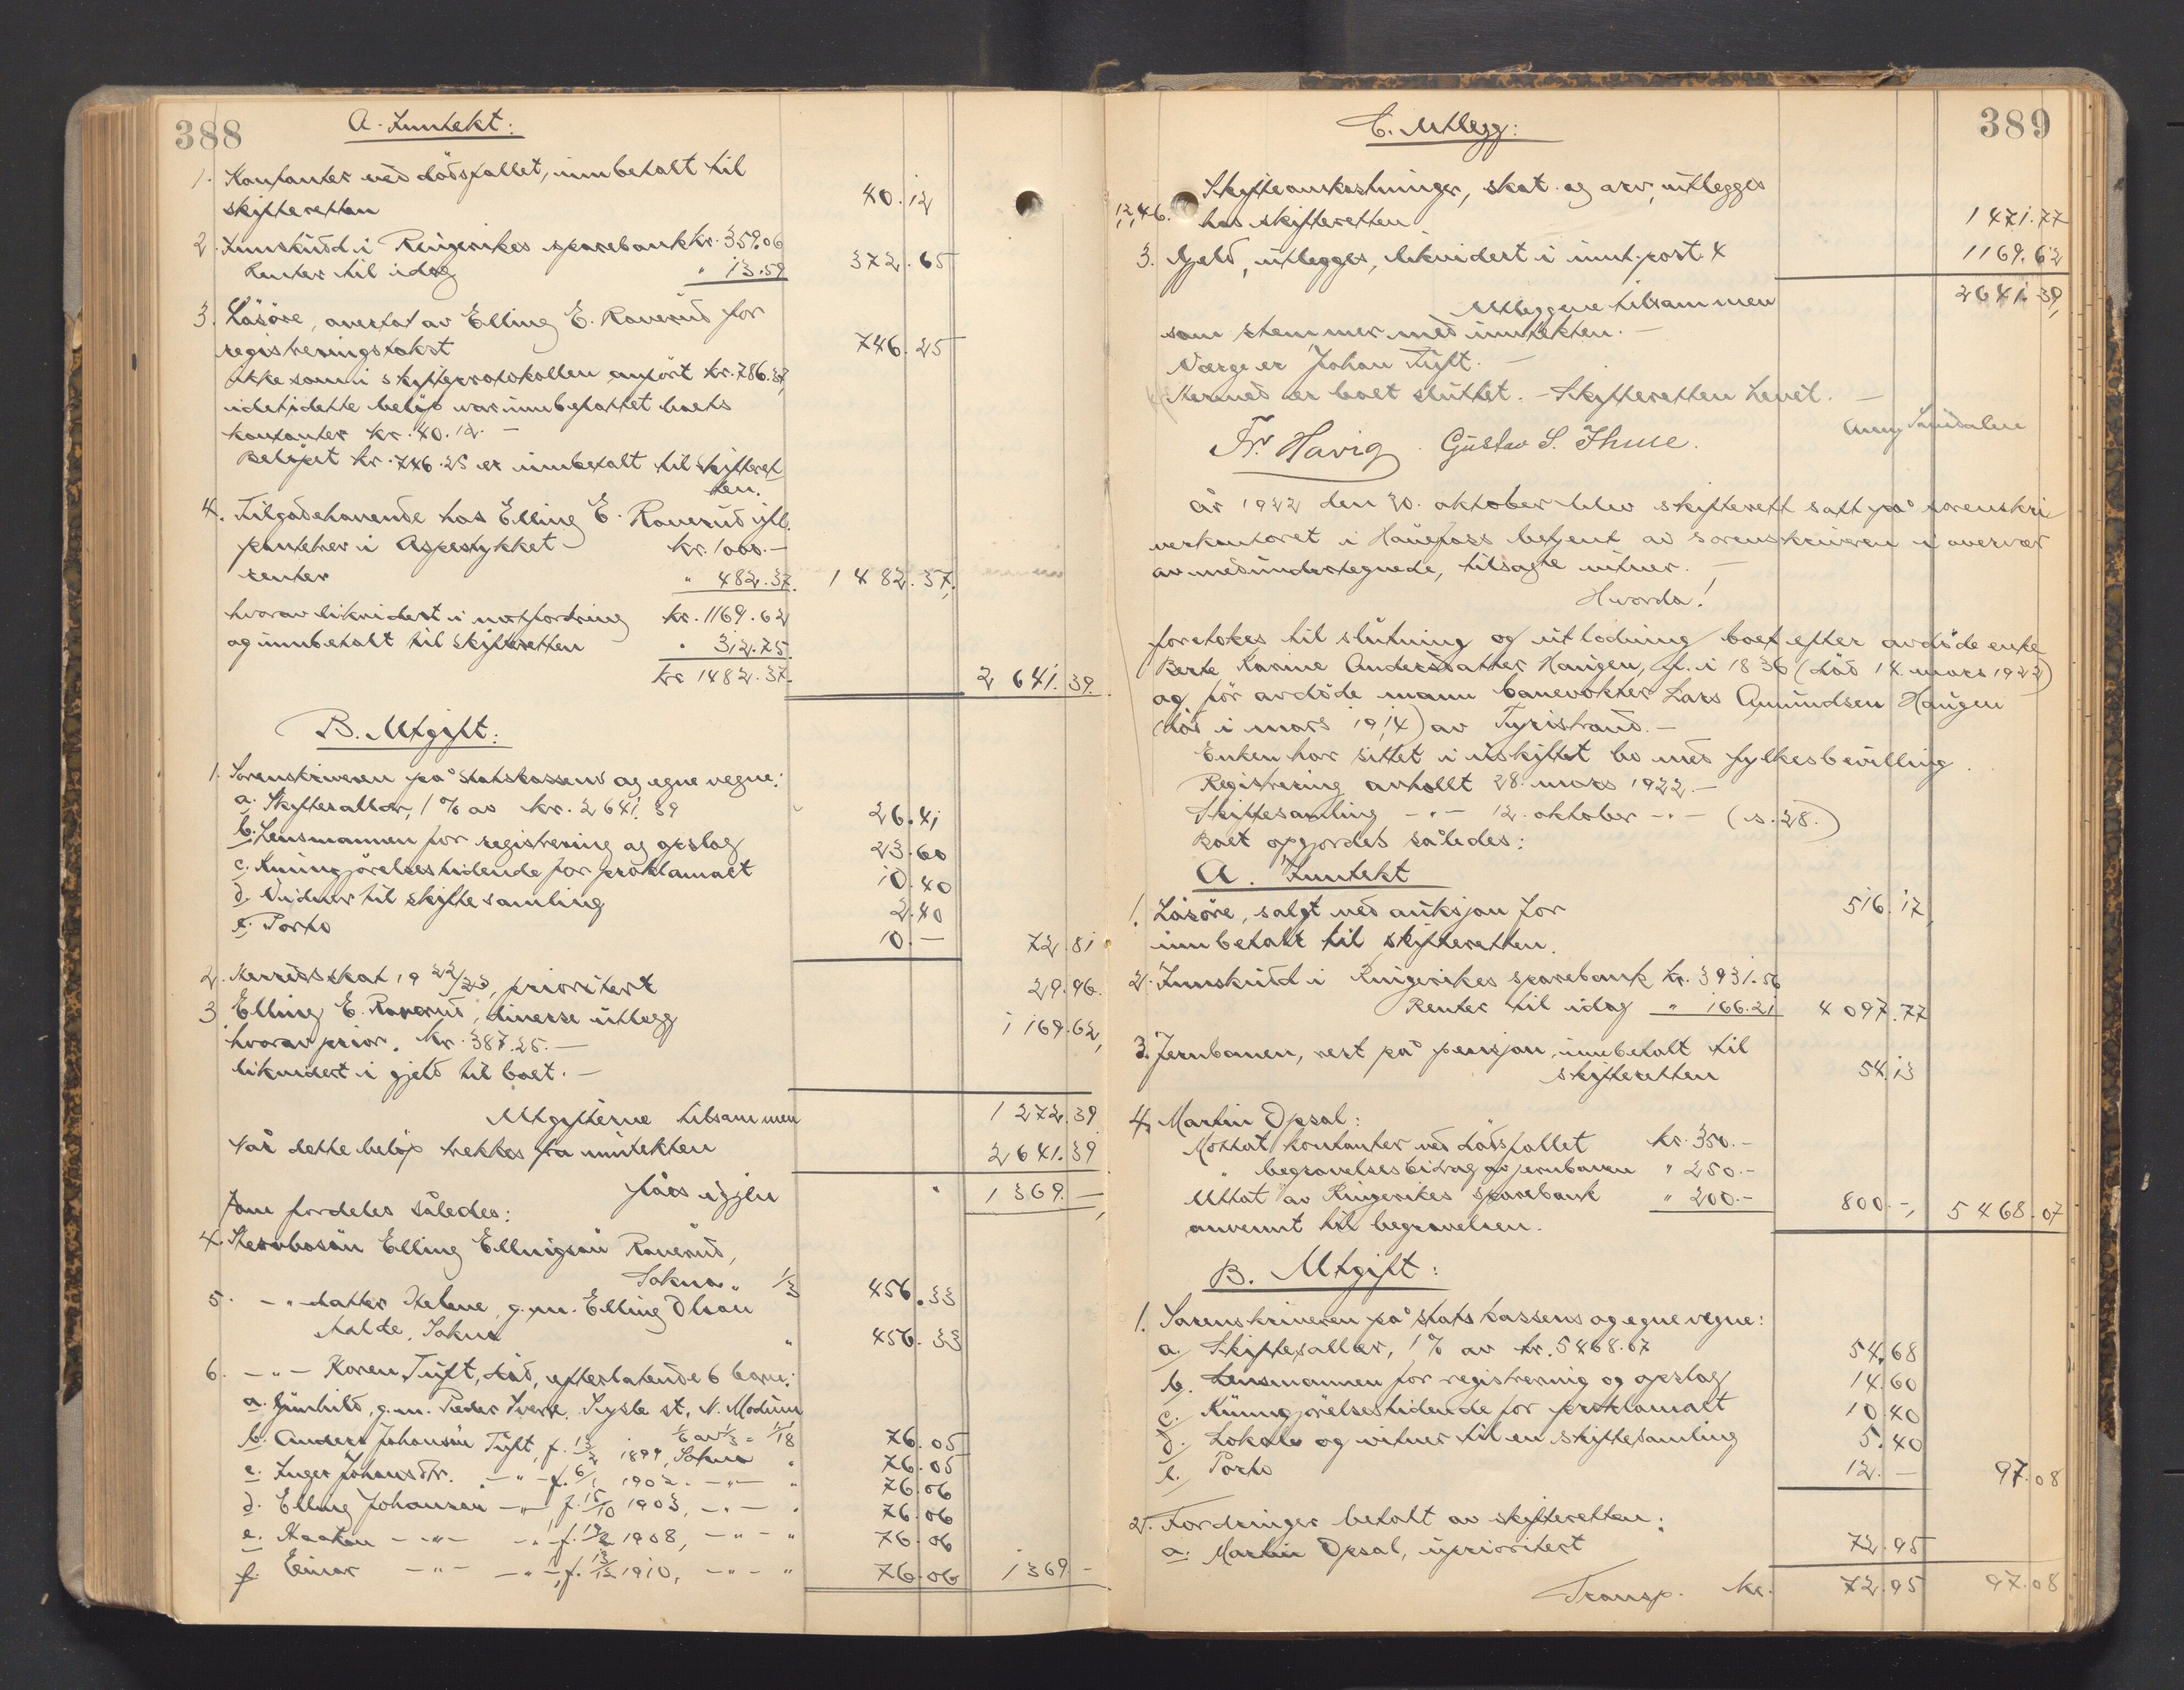 388
A. Inntekt:
1. Kontanter ved dödsfallet, innbetalt til
skifteretten 40.12
2. Innskudd i Ringerikes sparebank kr. 359.06
Renter til idag " 13.59 372.65
3. Lösöre, overtat av Elling E. Raverud for
registreringstakst 746.25
ikke som i skifteprotokollen anfört kr. 786.37,
idet i dette belöp var innbefattet boets
kontanter kr. 40.12. –
Belöpet kr. 746.25 er innbetalt til skifteret
ten.
4. Tilgodehavende hos Elling E. Raverud ifl.
panthever i Aspestykket – kr. 1000.–
renter " 482.37. 1482.37,
hvorav likvidert i motfordring kr. 1169.62
og innbetalt til skifteretten " 312.75.
kr. 1482.37. 2641.39.
B. Utgift:
1. Sorenskriveren på statskassens og egne vegne:
a. Skiftesallær, 1% av kr. 2641.39 26.41
b. Lensmannen for registrering og opslag 23.60
c. Kunngjörelsestidende for proklamaet 10.40
d. Vidner til skiftesamling 2.40
e. Porto 10.– 72.81
2. Herredsskat 19 22/23, prioritert 29.96.
3. Elling E. Raverud, diverse utlegg
hvorav prior. kr. 387.25. – 1169.62,
likvidert i gjeld til boet. –
Utgifterne tilsammen 1272.39
Når dette belöp trekkes fra inntekten 2641.39
fåes igjen 1369.–
som fordeles således:
4. Stervbosön Elling Ellingsön Raverud,
Sokna " 1/3 456.33
5. – " – datter Helene, g.m. Elling Olsen
Halde, Sokna " 456.33
6. – " – Karen Tuft, död, efterlatende 6 barn:
a. Gunhild, g.m. Peder Sverre, Sysle st. N. Modum
1/6 av 1/3 = 1/18 76.05
b. Anders Johansön Tuft, f. 13/2 1899, Sokna " 76.05
c. Inger Johansdtr. – " – f. 6/1 1902. – " – " 76.06
d. Elling Johansen – " – f. 15/10 1903, – " – " 76.06
e. Haakon – " – – " – f. 19/2 1908, – " – " 76.06
f. Einar – " – – " –, f. 13/12 1910, – " – " 76.06 1369.–
389
C. Utlegg:
1, 2, 4 6. Skifteomkostninger, skat og arv, utlegges
hos skifteretten 1471.77
3. Gjeld, utlegges, likvidert i innt.post. 4 1169.62
Utleggene tilsammen 2641.39,
som stemmer med inntekten. –
Værge er Johan Tuft. –
Hermed er boet sluttet. – Skifteretten hevet. –
Fr. Havig. Gustav S. Thue.
År 1922 den 20. oktober blev skifterett satt på sorenskri
verkontoret i Hönefoss betjent av sorenskriveren i overvær
av medundertegnede, tilsagte vitner. –
Hvorda!
foretokes til slutning og utlodning boet efter avdöde enke
Berte Karine Andersdatter Haugen, f. i 1836 (död 14. mars 1922)
og för avdöde mann banevokter Lars Amundsen Haugen
(död i mars 1914) av Tyristrand. –
Enken har sittet i uskiftet bo med fylkesbevilling.
Registrering avholt 28. mars 1922. –
Skiftesamling – " – 12. oktober – " – (s. 28.)
Boet opgjordes således:
A. Inntekt
1. Lösöre, salgt ved auksjon for 516.17,
innbetalt til skifteretten.
2. Innskudd i Ringerikes sparebank kr. 3931.56
Renter til idag " 166.21 4097.77
3. Jernbanen, rest på pensjon, innbetalt til
skifteretten 54.13
4. Martin Opsal:
Mottat kontanter ved dödsfallet kr. 350.–
" begravelsesbidrag av jernbanen " 250.–
Uttat av Ringerikes sparebank " 200.– 800.–, 5468.07
anvennt til begravelsen.
B. Utgift:
1. Sorenskriveren på statskassens og egne vegne:
a. Skiftesallær, 1% av kr. 5468.07 54.68
b. Lensmannen for registrering og opslag 14.60
c. Kunngjörelsestidende for proklamaet 10.40
d. Lokale og vitner til en skiftesamling 5.40
e. Porto 12.– 97.08
2. Fordringer betalt av skifteretten:
a. Martin Opsal, uprioritert 72.95
Transp. kr. 72.95 97.08